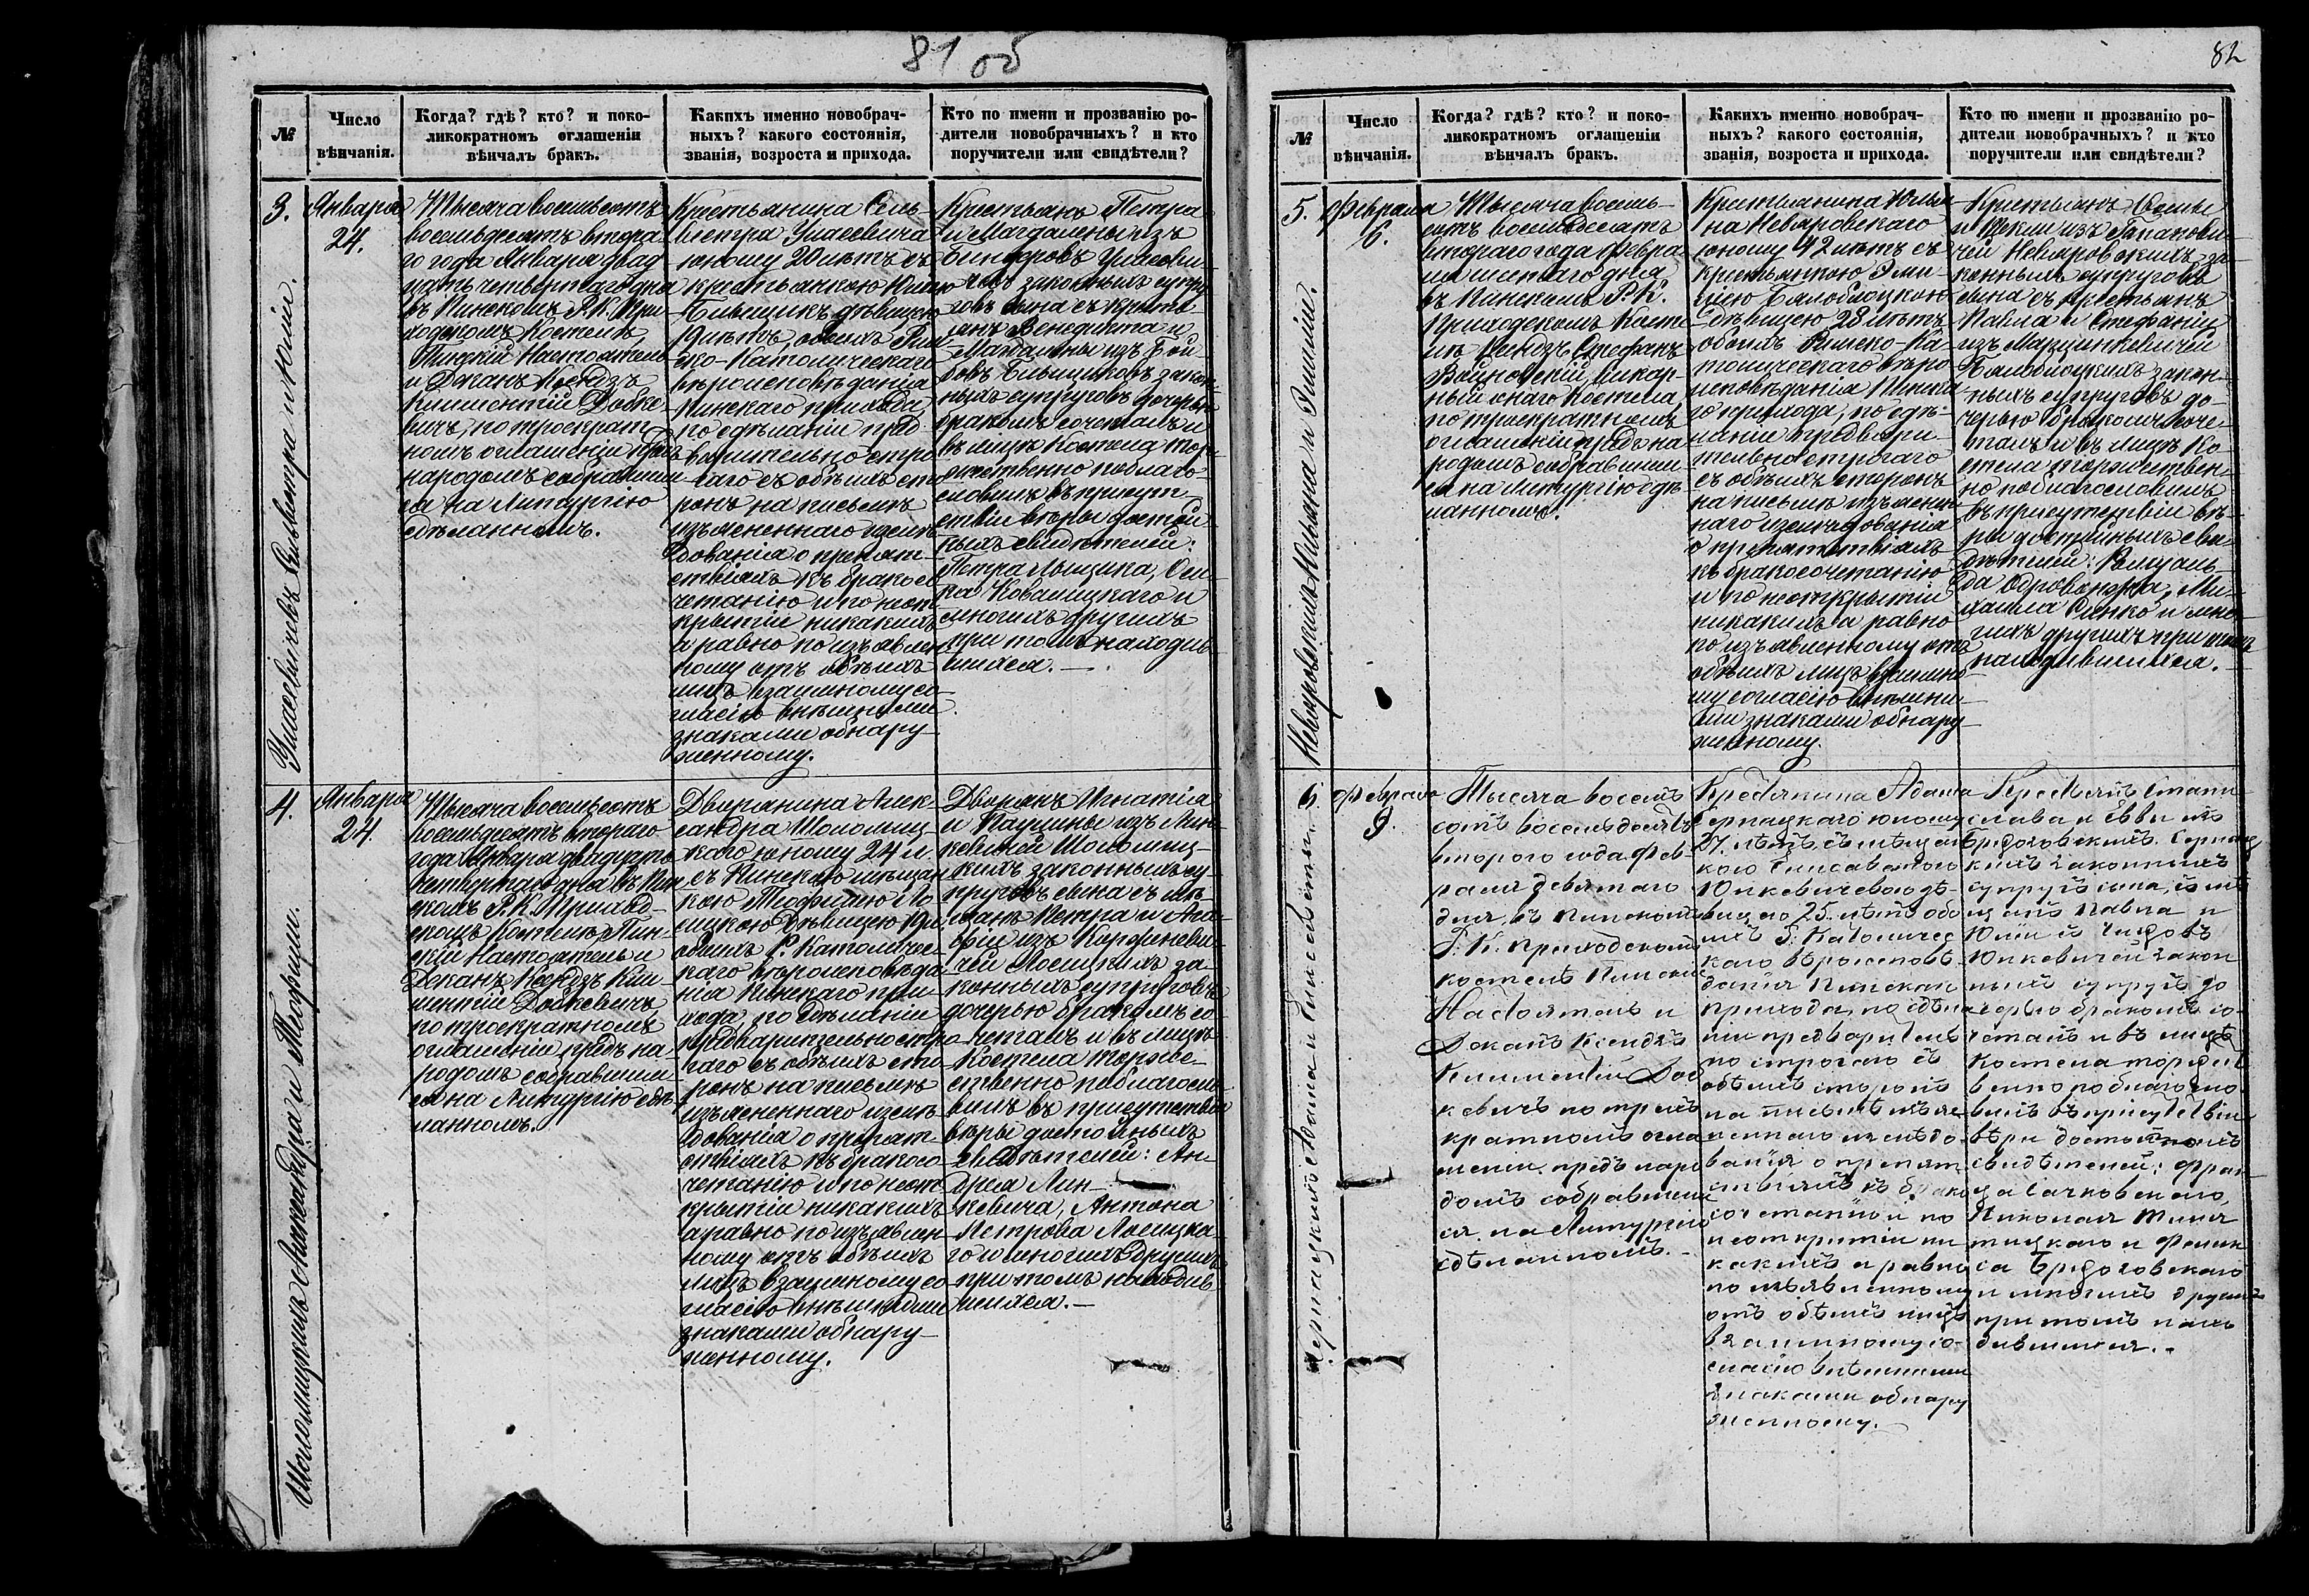 81 об
№
Число
вѣнчанія.
Когда? гдѣ? кто? и поко-
ликократномъ оглашеніи
вѣнчалъ бракъ.
Какихъ именно новобрач-
ныхъ? какого состоянія,
званія, возроста и прихода.
Кто по имени и прозванію ро-
дители новобрачныхъ? и кто
поручители или свидѣтели?
3.
Января
24.
Тысяча восемьсотъ
восемьдесятъ втора-
го года Января двад-
цать четвертаго дня
въ Пинскомъ Р. К. При-
ходскомъ Костелѣ,
Пинскій Настоятель
и Деканъ Ксендзъ
Климентій Довке-
вичъ, по троекрат-
номъ оглашеніи предъ
народомъ собравшим-
ся на Литургію
сдѣланномъ.
Крестьянина Силь-
вестра
юношу 20 лѣтъ съ
крестьянкою Юліею
Бильщикъ дѣвицею
19 лѣтъ, обоихъ Рим-
ско-Католическаго
вѣроисповѣданія
Пинскаго прихода,
по сдѣланіи пред-
варительно стро-
гаго съ обѣихъ сто-
ронъ на письмѣ
изъясненнаго изслѣ-
дованія о препят-
ствіяхъ къ бракосо-
четанію и по неот-
крытіи никакихъ
а равно по изъявлен-
ному отъ обѣихъ
лицъ взаимному со-
гласію внѣшними
знаками обнару-
женному.
Крестьянъ Петра
и Магдалены изъ
законныхъ супру-
говъ сына съ кресть-
янъ Венедикта и
Магдалены изъ Бой-
ковъ Бильщиковъ закон-
ныхъ супруговъ дочерью
бракомъ сочеталъ и
въ лицѣ Костела тор-
жественно поблаго-
словилъ въ присут-
ствіи вѣры достой-
ныхъ свидѣтелей:
Петра Лыщика, Оси-
па Ковалицкаго и
многихъ другихъ
при томъ находив-
шихся.
Сильвестра и Юліи.
4.
Января
24.
Тысяча восемьсотъ
восемьдесятъ втораго
года Января двадцать
четвертаго дня въ Пин-
скомъ Р. К. Приход-
скомъ Костелѣ, Пин-
скій Настоятель и
Деканъ Ксендзъ Кли-
ментій Довкевичъ,
по троекратномъ
оглашеніи предъ на-
родомъ собравшим-
ся на Литургію сдѣ-
ланномъ.
Дворянина Алек-
сандра Шоломиц-
каго юношу 24 л.
съ Пинскою мѣщан-
кою Теофилею Ло-
сицкою дѣвицею 19 л.
обоихъ Р. Католичес-
каго вѣроисповѣда-
нія Пинскаго при-
хода, по сдѣланіи
предварительно стро-
гаго съ обѣихъ сто-
ронъ на письмѣ
изъясненнаго изслѣ-
дованія о препят-
ствіяхъ къ бракосо-
четанію и по неот-
крытіи никакихъ
а равно по изъявлен-
ному отъ обѣихъ
лицъ взаимному со-
гласію внѣшними
знаками обнару-
женному.
Дворянъ Игнатія
и Паулины изъ Лин-
кевичей Шоломиц-
кихъ законныхъ су-
пруговъ сына съ мѣ-
щанъ Петра и Ага-
фіи изъ Корженеви-
чей Лосицкихъ за-
конныхъ супруговъ
дочерью бракомъ со-
четалъ и въ лицѣ
Костела торже-
ственно поблагосло-
вилъ въ присутствіи
вѣры достойныхъ
свидѣтелей: Ан-
дрея Лин-
кевича, Антона
Петрова Лосицка-
го и многихъ другихъ
при томъ находив-
шихся.
Шоломицкихъ Александра и Теофиліи.
82
№
Число
вѣнчанія.
Когда? гдѣ? кто? и поко-
ликократномъ оглашеніи
вѣнчалъ бракъ.
Какихъ именно новобрач-
ныхъ? какого состоянія,
званія, возроста и прихода.
Кто по имени и прозванію ро-
дители новобрачныхъ? и кто
поручители или свидѣтели?
5.
Февраля
6.
Тысяча восемь-
сотъ восемьдесятъ
втораго года Февра-
ля шестаго дня
въ Пинскомъ Р. К.
Приходскомъ Косте-
лѣ Ксендзъ Стефанъ
Войновскій викар-
ный сего Костела,
по троекратномъ
оглашеніи предъ на-
родомъ собравшим-
ся на Литургію сдѣ-
ланномъ.
Крестьянина Юлья-
на Невяровскаго
юношу 42 лѣтъ съ
крестьянкою Эми-
ліею Бялоблоцкою
дѣвицею 28 лѣтъ,
обоихъ Римско-Ка-
толическаго вѣро-
исповѣданія Пинска-
го прихода, по сдѣ-
ланіи предвари-
тельно строгаго
съ обѣихъ сторонъ
на письмѣ изъяснен-
наго изслѣдованія
о препятствіяхъ
къ бракосочетанію
и по неоткрытіи
никакихъ а равно
по изъявленному отъ
обѣихъ лицъ взаимно-
му согласію внѣшни-
ми знаками обнару-
женному.
Крестьянъ
и Теклы изъ
чей Невяровскихъ за-
конныхъ супруговъ
сына съ крестьянъ
Павла и Стефаніи
изъ Марцинкевичей
Бялоблоцкихъ закон-
ныхъ супруговъ до-
черью бракомъ соче-
талъ и въ лицѣ Ко-
стела торжествен-
но поблагословилъ
въ присутствіи вѣ-
ры достойныхъ сви-
дѣтелей: Ромуаль-
да Одровонжа, Ми-
хаила Синко и мно-
гихъ другихъ при томъ
находившихся.
Невяровскихъ Юльяна и Эмиліи.
6.
Февраля
9.
Тысяча восемь-
сотъ восемьдесятъ
второго года Фев-
раля девятаго
дня, въ Пинскомъ
Р. К. Приходскомъ
костелѣ Пинскій
Настоятель и
Деканъ Ксендзъ
Климентій Дов-
кевичъ по трех-
кратномъ огла-
шеніи предъ наро-
домъ собравшим-
ся на Литургію
сдѣланномъ.
Крестьянина Адама
юношу
27 лѣтъ съ мѣщан-
кою Елисаветою
Юнкевичевою дѣ-
вицею 25 лѣтъ обо-
ихъ Р. Католичес-
каго вѣроисповѣ-
данія Пинскаго
прихода, по сдѣла-
ніи предваритель-
но строгаго съ
обѣихъ сторонъ
на письмѣ изъяс-
неннаго изслѣдо-
ванія о препят-
ствіяхъ къ брако-
сочетанію и по
неоткрытіи ни-
какихъ а равно
по изъявленному
отъ обѣихъ лицъ
взаимному со-
гласію внѣшними
знаками обнару-
женному.
Крестьянъ Стани-
слава и Еввы изъ
кихъ законныхъ
супруговъ сына, съ мѣ-
щанъ Павла и
Юліи изъ
Юнкевичей закон-
ныхъ супруговъ до-
черью бракомъ со-
четалъ и въ лицѣ
Костела торжест-
венно поблагосло-
вилъ въ присутствіи
вѣры достойныхъ
свидѣтелей: Фран-
ца Сачковскаго,
Николая
и Фелик-
са
и многихъ другихъ
при томъ нахо-
дившихся.
Адама и Елисаветы.